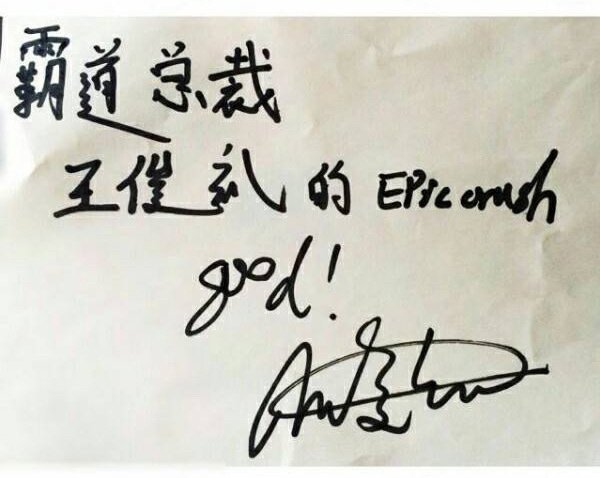 霸道总裁
王 的 EPic crush
good!